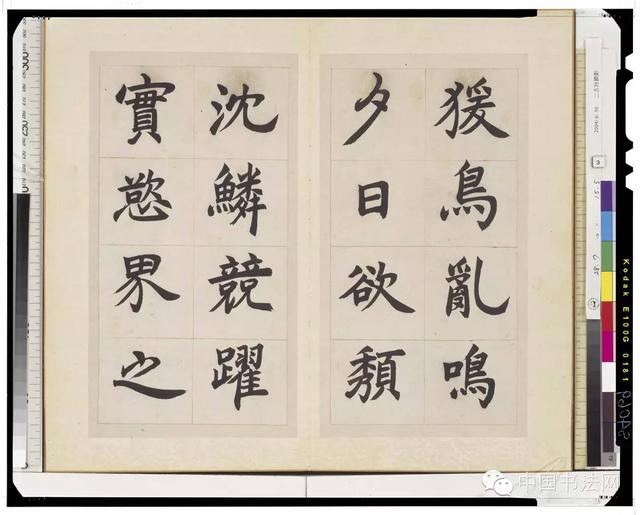 猨鳥亂鳴
夕日欲頹
沈鱗競躍
實慾界之
Kodak E100G 0181
中国书法网